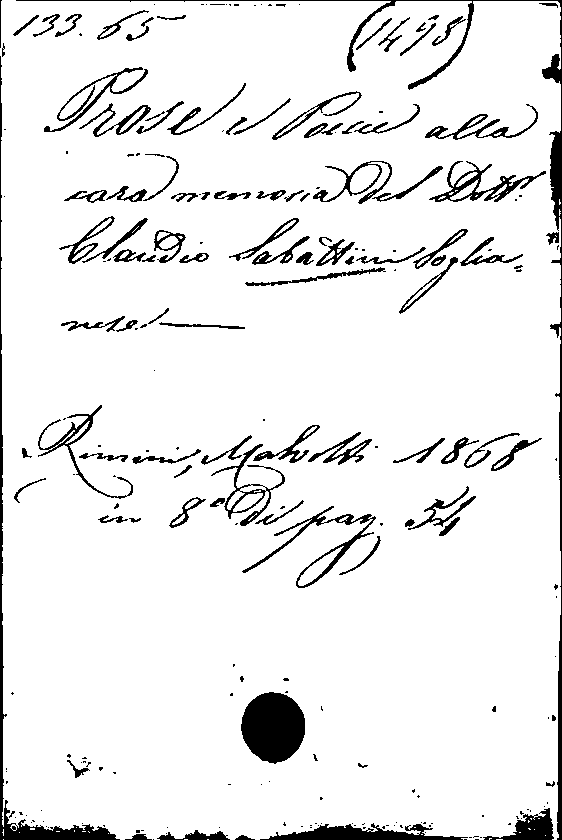 133.65 (1498)
Prose e Poesie alla
cara memoria del Dottr.
Claudio Sabattini Soglia=
nese.—
Rimini, Malvolti 1868
in 8° di pag. 54